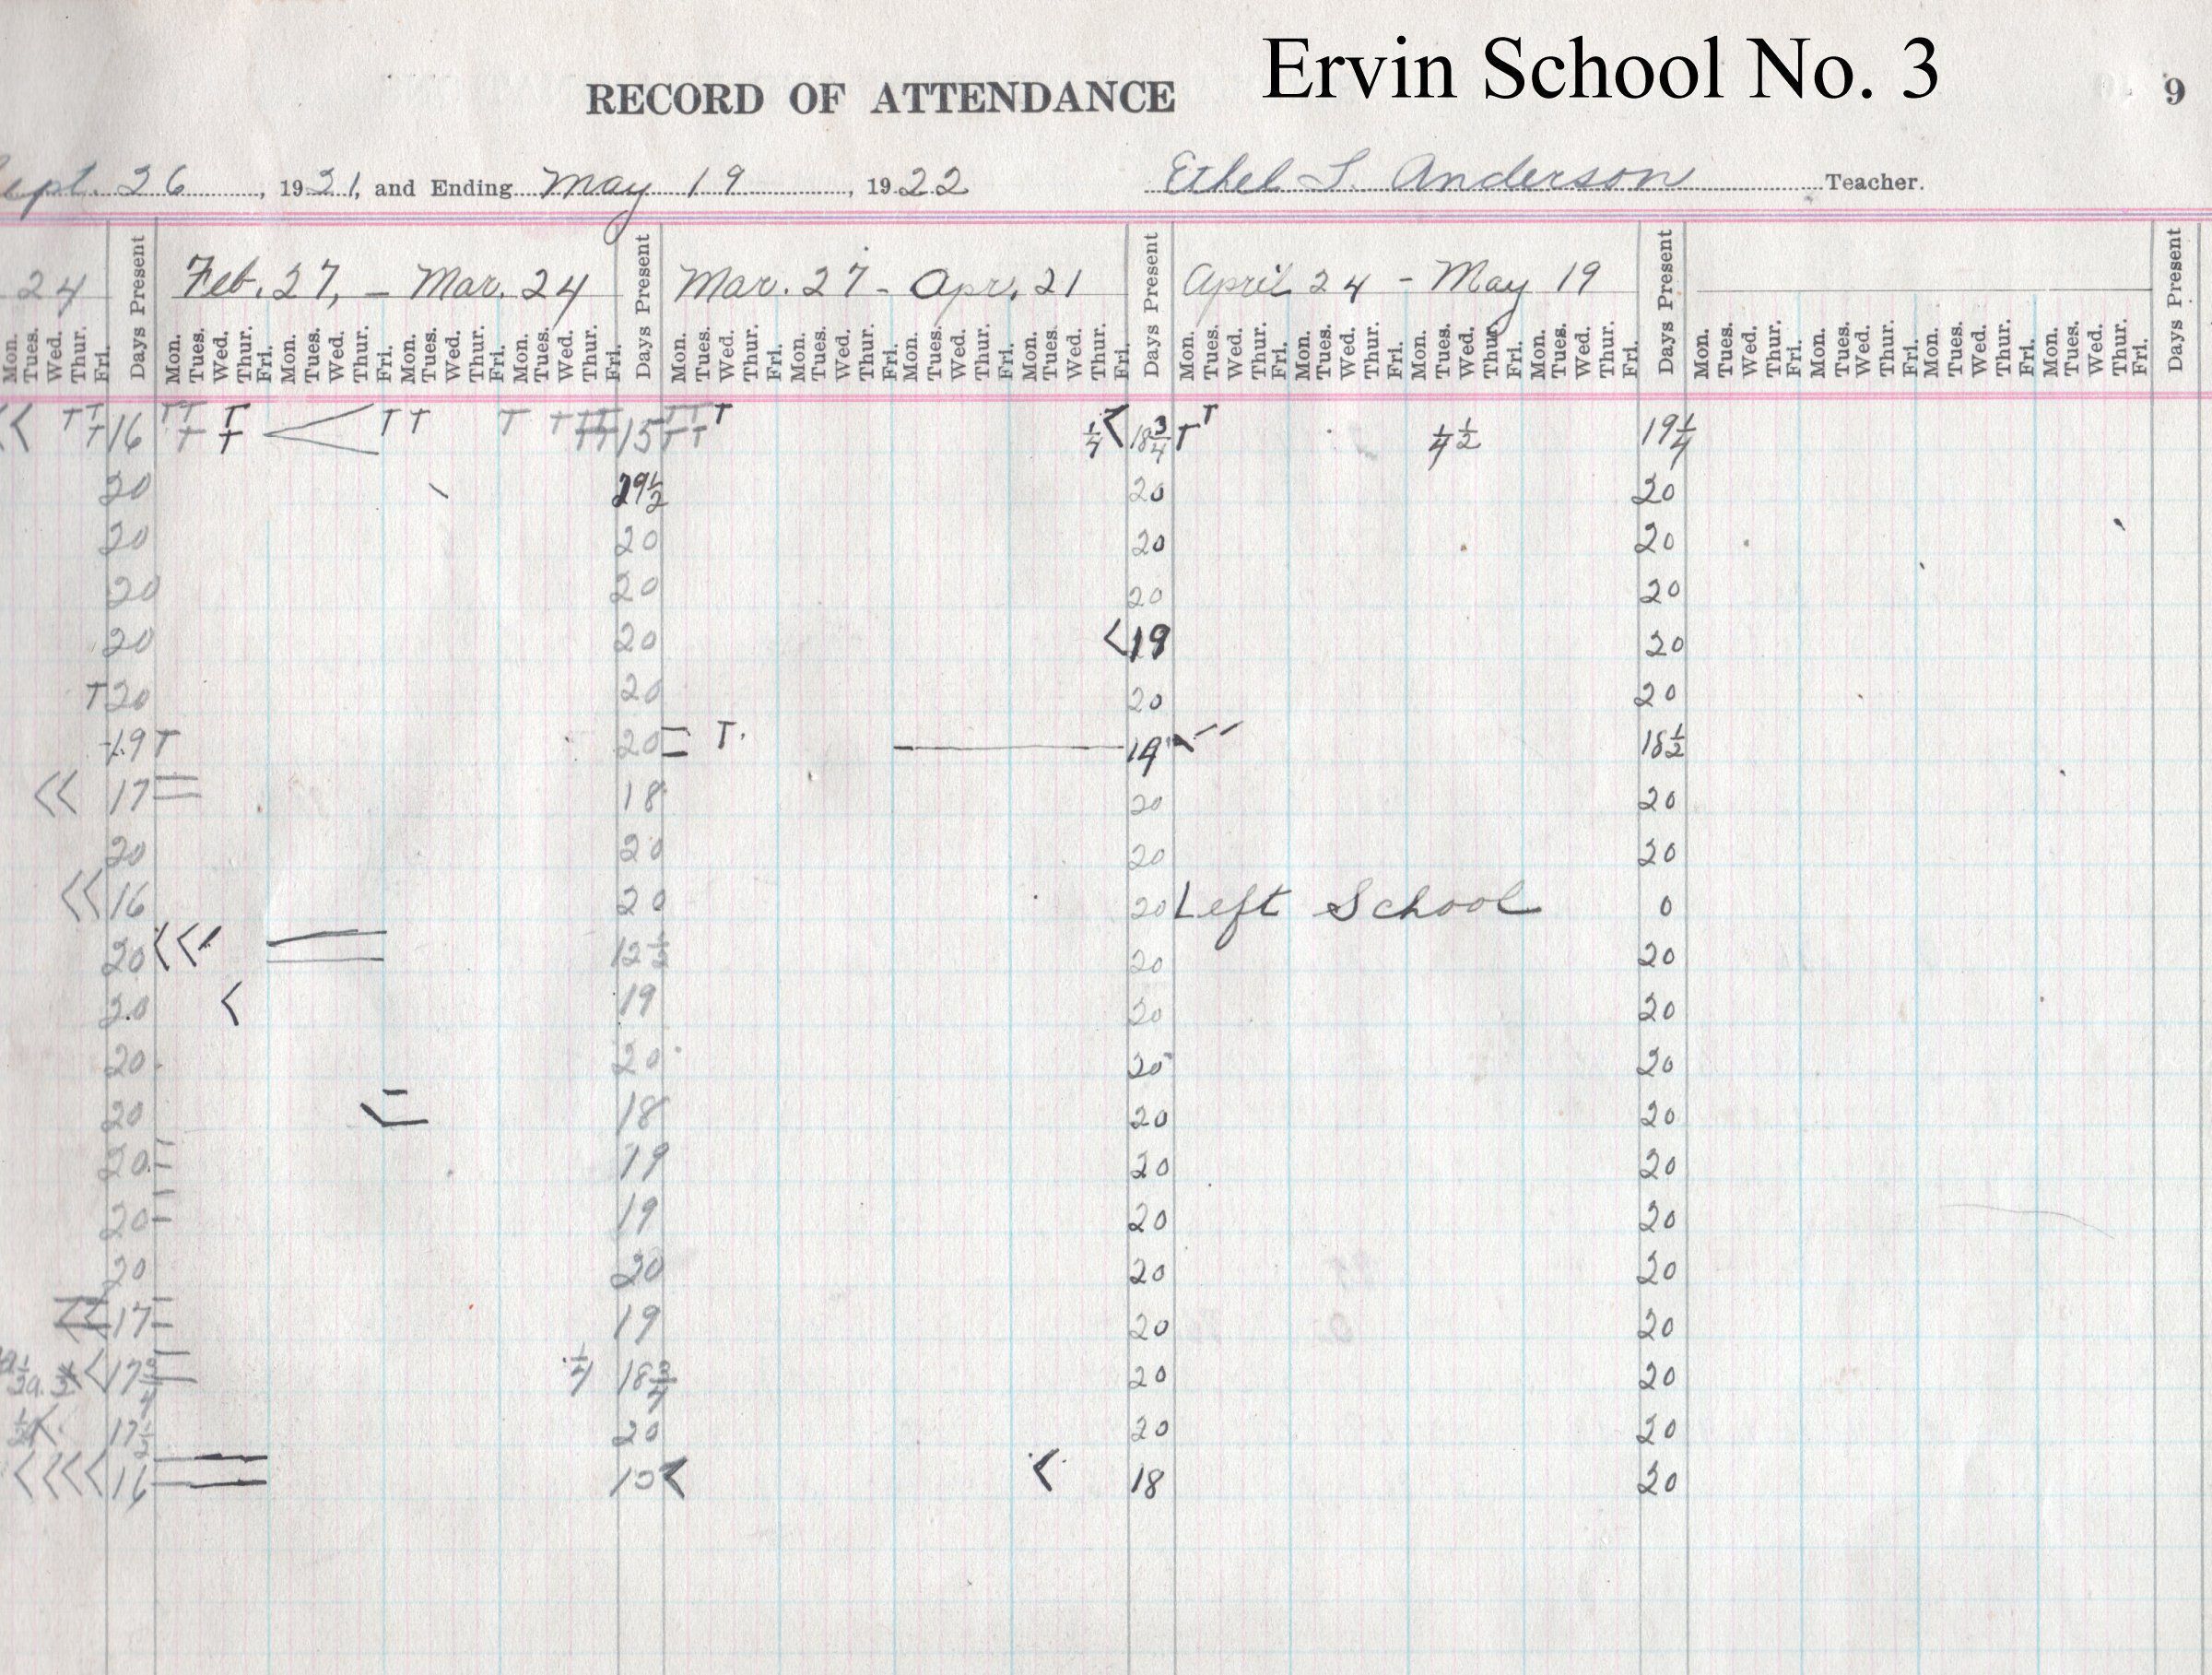 Ervin School No. 3
RECORD OF ATTENDANCE 9
Sept. 26, 1921, and Ending May 19, 1922 Ethel L. Anderson Teacher.
24 Days Present Feb. 27, - Mar. 24 Days Present Mar. 27 - Apr. 21 Days Present April 24 - May 19 Days Present Days Present
Mon. Tues. Wed. Thur. Fri. Mon. Tues. Wed. Thur. Fri. Mon. Tues. Wed. Thur. Fri. Mon. Tues. Wed. Thur. Fri. Mon. Tues. Wed. Thur. Fri. Mon. Tues. Wed. Thur. Fri. Mon. Tues. Wed. Thur. Fri. Mon. Tues. Wed. Thur. Fri. Mon. Tues. Wed. Thur. Fri. Mon. Tues. Wed. Thur. Fri. Mon. Tues. Wed. Thur. Fri. Mon. Tues. Wed. Thur. Fri. Mon. Tues. Wed. Thur. Fri. Mon. Tues. Wed. Thur. Fri. Mon. Tues. Wed. Thur. Fri. Mon. Tues. Wed. Thur. Fri. Mon. Tues. Wed. Thur. Fri.
T T T 16 T T T T T T T T T 15 T T T T T 1/4 18 3/4 T T 1/4 1/2 19 1/4
20 19 1/2 20 20
20 20 20 20
20 20 20 20
20 20 19 20
T 20 20 20 20
19 T 20 T. 14 18 1/2
17 18 20 20
20 20 20 20
16 20 20 Left School 0
20 12 1/2 20 20
20 19 20 20
20 20 20 20
20 18 20 20
20 19 20 20
20 19 20 20
20 20 20 20
17 19 20 20
17 3/4 1/4 18 3/4 20 20
17 1/2 20 20 20
16 15 18 20